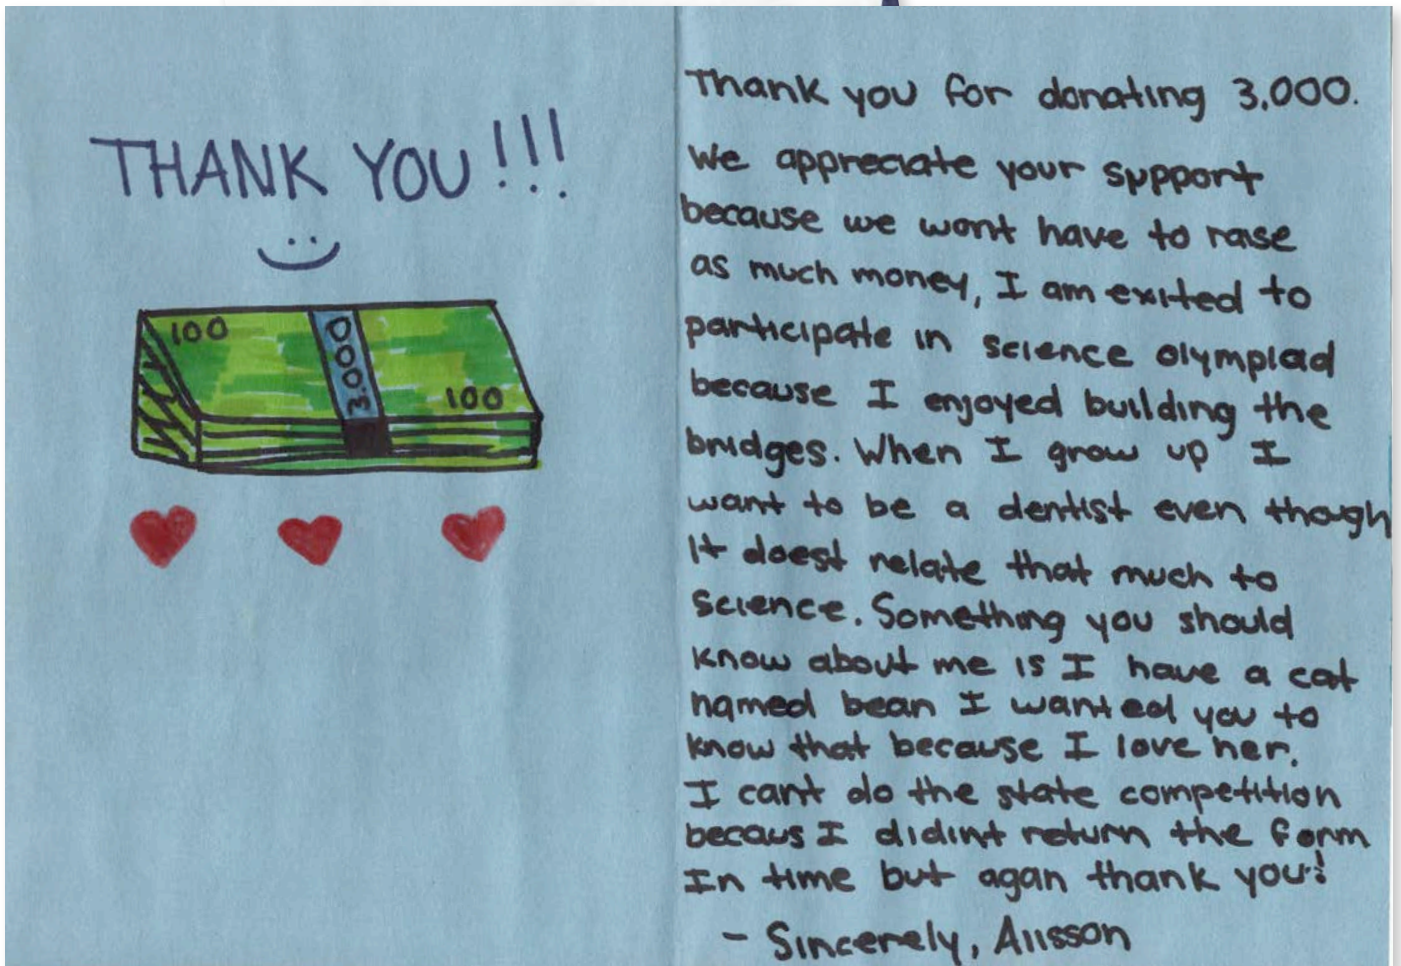 THANK YOU!!!
100
3.000
100
Thank you for donating 3,000.
We appreciate your support
because we wont have to raise
as much money, I am exited to
participate in science olympiad
because I enjoyed building the
bridges. When I grow up I
want to be a dentist even though
it doest relate that much to
science. Something you should
know about me is I have a cat
named bean I wanted you to
know that because I love her.
I cant do the state competition
becaus I didint return the form
In time but agan thank you!
- Sincerely, Alisson